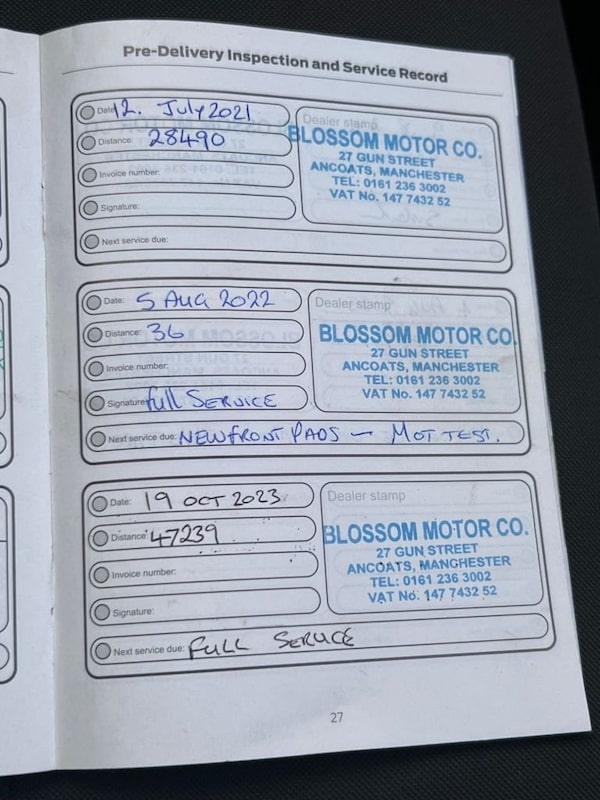 Pre-Delivery Inspection and Service Record
Date: 12. July 2021
Distance: 28490
Invoice number:
Signature:
Next service due:
Dealer stamp
BLOSSOM MOTOR CO.
27 GUN STREET
ANCOATS, MANCHESTER
TEL: 0161 236 3002
VAT No. 147 7432 52
Date: 5 AUG 2022
Distance: 36
Invoice number:
Signature: full SERVICE
Next service due: NEW FRONT PADS - MOT TEST.
Dealer stamp
BLOSSOM MOTOR CO.
27 GUN STREET
ANCOATS, MANCHESTER
TEL: 0161 236 3002
VAT No. 147 7432 52
Date: 19 OCT 2023
Distance: 47239
Invoice number:
Signature:
Next service due: FULL SERVICE
Dealer stamp
BLOSSOM MOTOR CO.
27 GUN STREET
ANCOATS, MANCHESTER
TEL: 0161 236 3002
VAT No. 147 7432 52
27